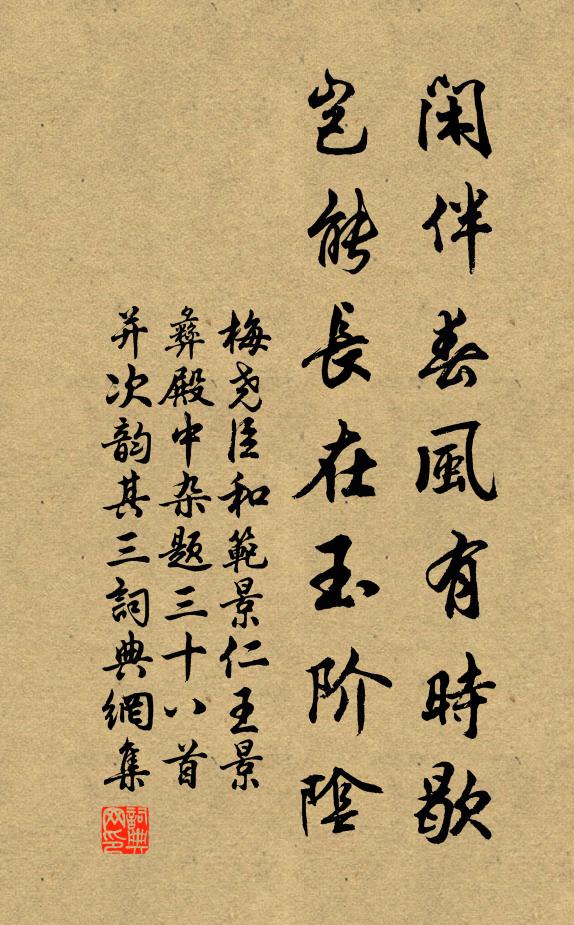 闲伴春風有時歇
岂能長在玉阶陰
梅尧臣和範景仁王景
彝殿中杂题三十八首
并次韵其三詞典網集
詞典网印